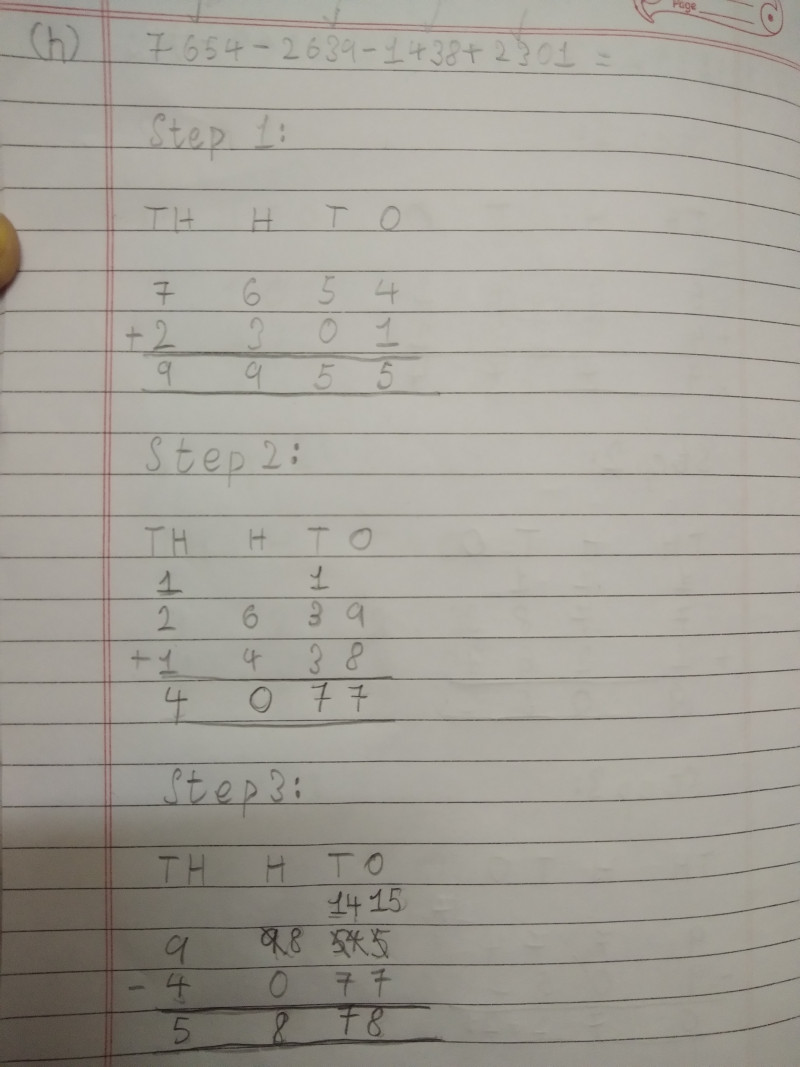 Page
(h) 7654-2639-1438+2301=
Step 1:
TH H T O
7 6 5 4
+2 3 0 1
9 9 5 5
Step 2:
TH H T O
1 1
2 6 3 9
+1 4 3 8
4 0 7 7
Step 3:
TH H T O
14 15
9 98 54 5
-4 0 7 7
5 8 7 8